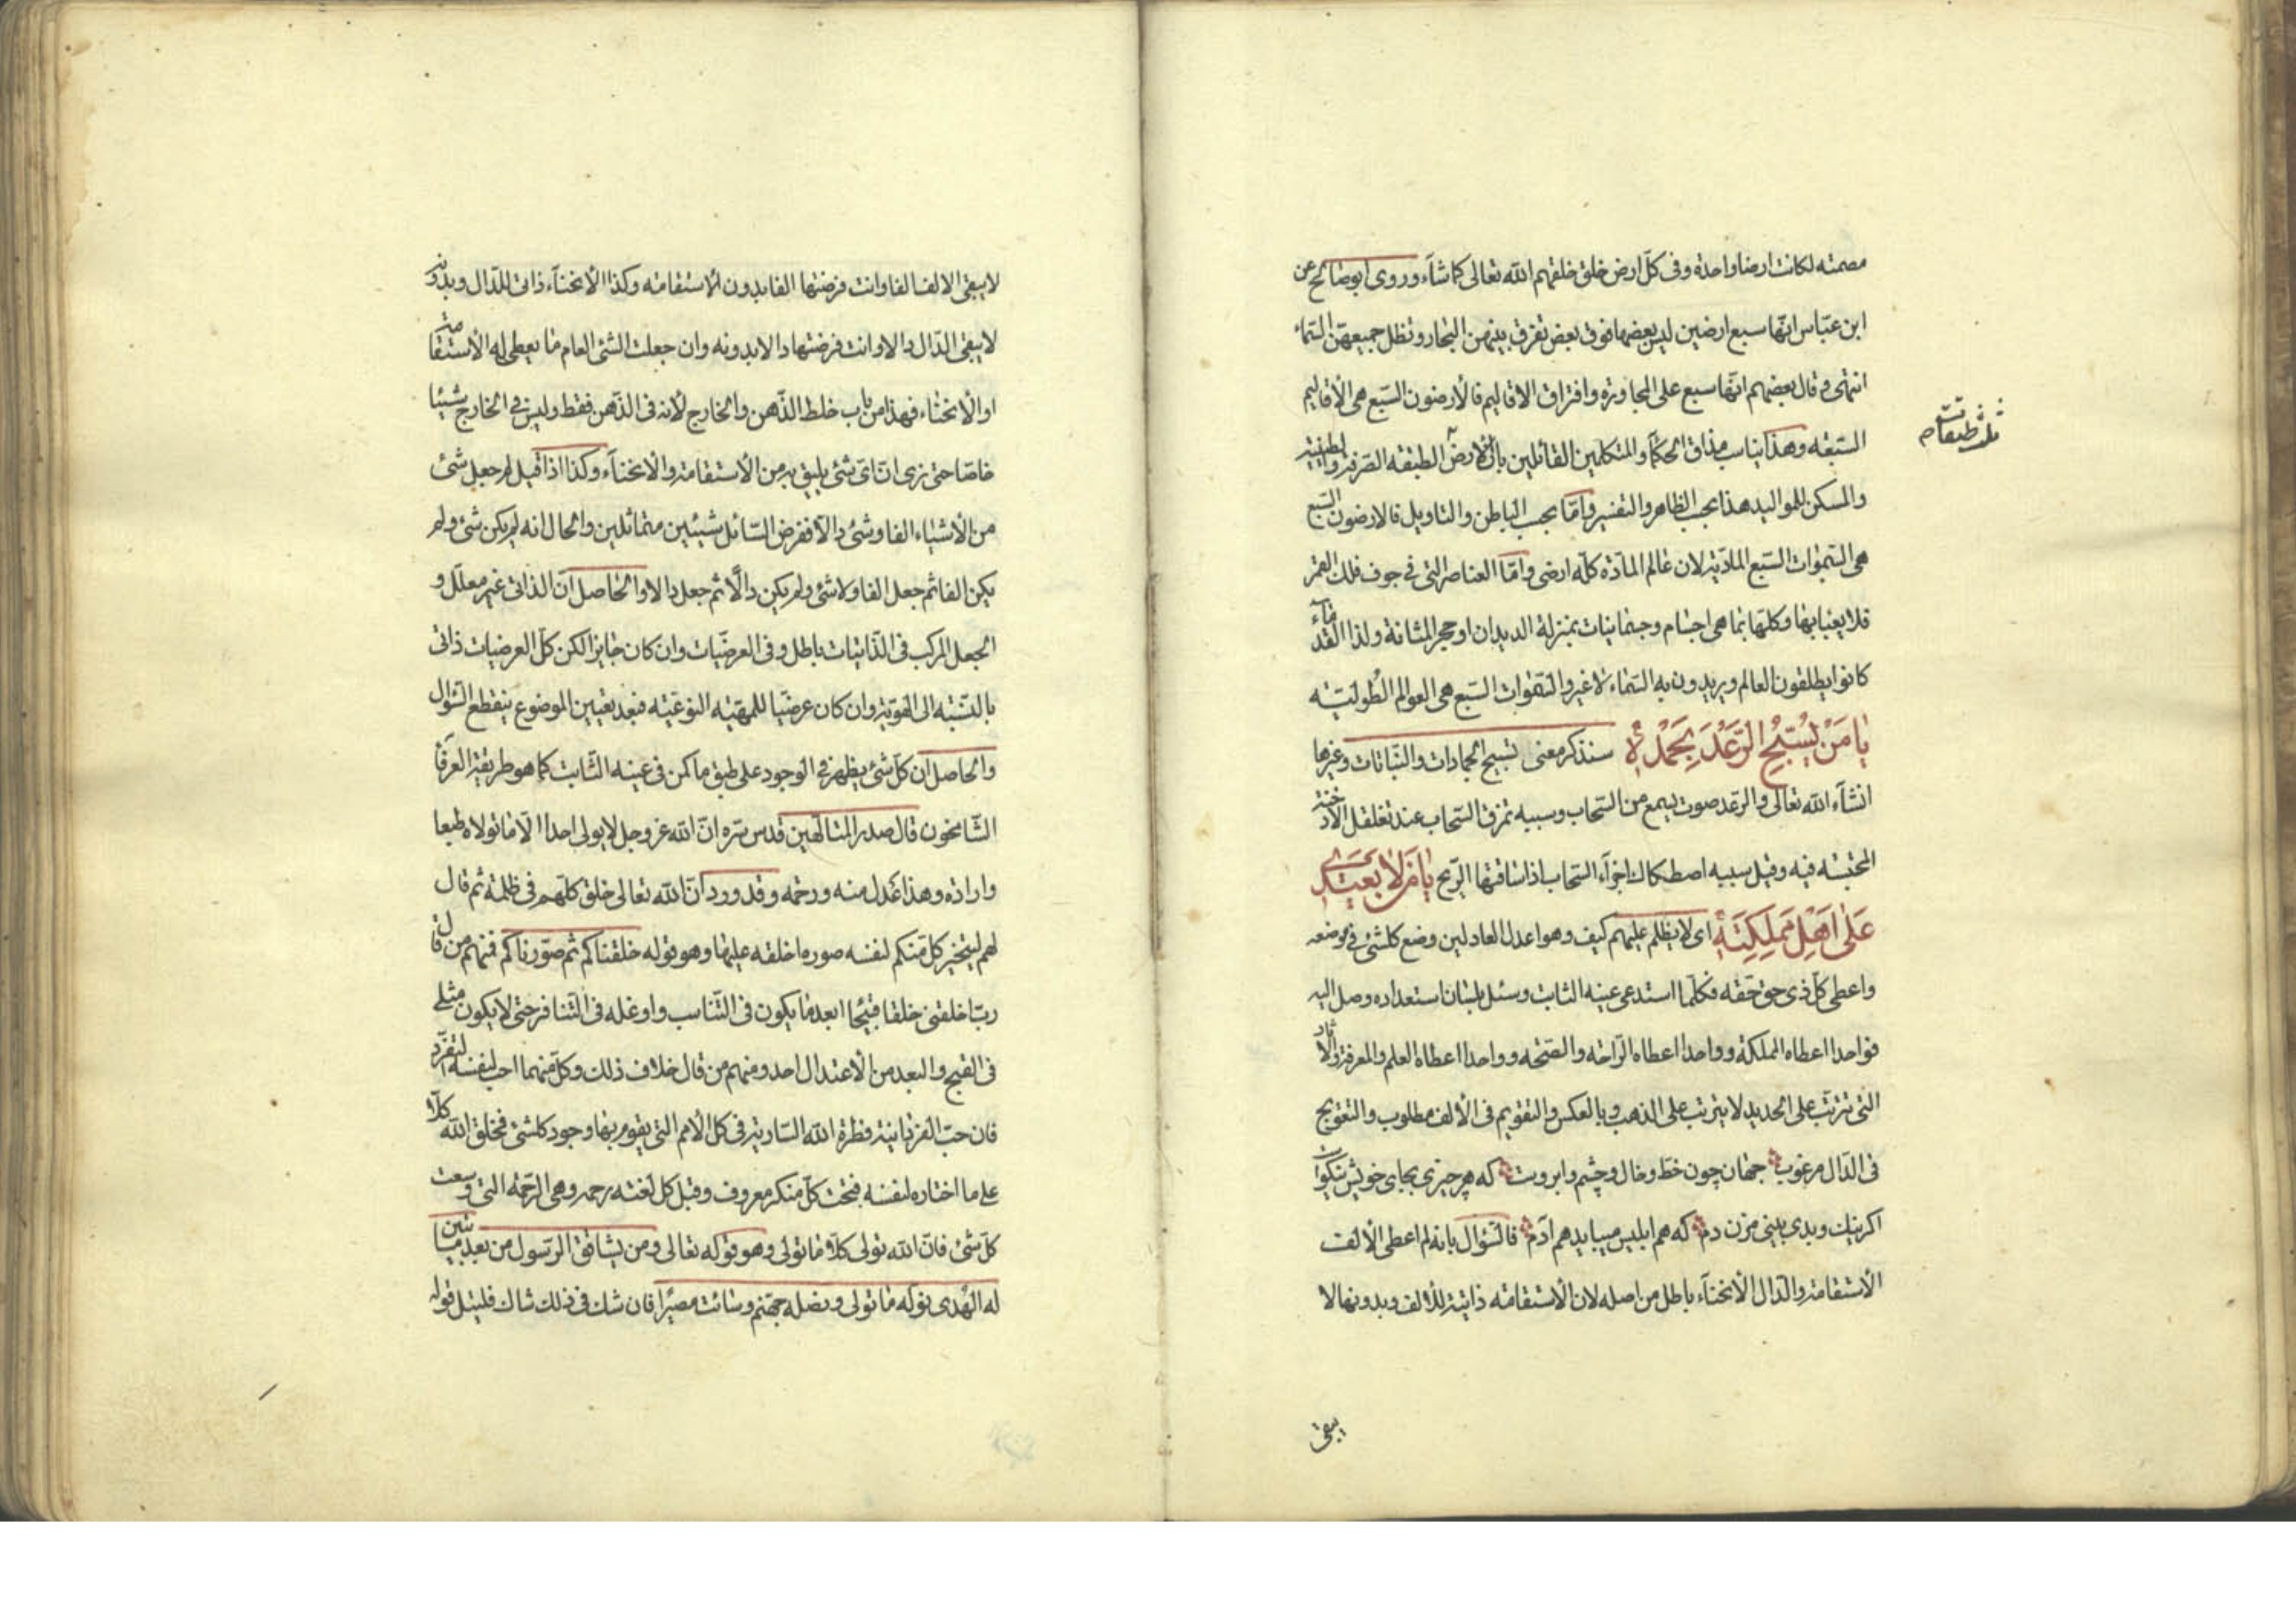 مصمته لكانت ارضا واحدة وفى كل ارض خلق خلقهم الله تعالى كما شآء وروى ابو صالح عن
ابن عبّاس انّها سبع ارضين ليس بعضها فوق بعض تفرق بينهن البحار وتظل جميعهنّ السّماء
انتهى وقال بعضهم انّها سبع على المجاورة وافتراق الاقاليم فالأرضون السّبع هى الأقاليم
السّبعه وهذا يناسب مذاق الحكمآء والمتكلمين القائلين بان للارض الطبقه الصّرفة والطينيّة
ثلث طبقات
والمسكن للمواليد هذا بحسب الظاهر والتفسير وامّا بحسب الباطن والتاويل فالارضون السّبع
هى السّموات السّبع المادّيّة لان عالم المادّة كلّه ارضى وامّا العناصر التى فى جوف فلك القمر
فلا يعبأ بها وكلّها بما هى اجسام وجسمانيات بمنزلة الديدان او حجر المثانة ولذا القدمآء
كانوا يطلقون العالم ويريدون به السّماء لا غير والسّموات السّبع هى العوالم الطّوليّة
يا مَنْ يُسَبِّحُ الرَّعْدُ بِحَمْدِهِ سنذكر معنى تسبيح الجمادات والنّباتات وغيرها
انشآء الله تعالى والرّعد صوت يسمع من السّحاب وسببه تمزق السّحاب عند تغلغل الأدخنة
المحتبسه فيه وقيل سببه اصطكاك اجزآء السّحاب اذا ساقتها الرّيح يا مَنْ لا يَعْتَدى
عَلى اَهْلِ مَمْلِكَتِهِ اى لا يظلم عليهم كيف وهو اعدل العادلين وضع كلشئ فى موضعه
واعطى كلّ ذى حق حقه فكلّما استدعى عينه الثابت وسئل بلسان استعداده وصل اليه
فواحدا اعطاه المملكة وواحدا اعطاه الرّاحه والصّحه وواحدا اعطاه العلم والمعرفة والآثار
التى تترتّب على الحديد لا يترتب على الذهب وبالعكس والتقويم فى الألف مطلوب والتعويج
فى الدّال مرغوب جهان چون خطّ وخال وچشم وابروست كه هر چيزى بجاى خويش نيكوست
اكر نيك وبدى بينى مزن دم كه هم ابليس ميبايد هم آدم فالسّؤال بانه لم اعطى الألف
الأستقامة والدّال الأنحنآء باطل من اصله لان الأستقامه ذاتية للألف وبدونها لا
يبقى
لا يبقى الالف الفا وانت فرضتها الفا بدون الأستقامه وكذا الأنحنآء ذاتى للدّال وبدونه
لا يبقى الدّال دالا وانت فرضتها دالا بدونه وان جعلت الشئ العام ما يعطى له الأستقامة
او الأنحناء فهذا من باب خلط الذّهن والخارج لأنه فى الذّهن فقط وليس فى الخارج شيئا
خاصّا حتى نرى انّ اىّ شئ يليق به من الأستقامة والأنحنآء وكذا اذا قيل لم جعل شئ
من الأشياء الفا وشئ دالا ففرض السّائل شيئين متماثلين والحال انه لم يكن شئ ولم
يكن الفا ثم جعل الفا ولا شئ ولم يكن دالّا ثم جعل دالا والحاصل انّ الذاتى غير معلّل و
الجعل المركب فى الذّاتيات باطل وفى العرضّيات وان كان جايزا لكن كلّ العرضيات ذاتى
بالنّسبه الى الهويّة وان كان عرضيّا للمهيّه النوعيّه فبعد تعيين الموضوع ينقطع السّؤال
والحاصل ان كلّ شئ يظهر فى الوجود على طبق ما كمن فى عينه الثّابت كما هو طريقة العرفآ
الشّامخون قال صدر المتالّهين قدس سّره انّ الله عز وجل لا يولى احدا الّا ما تولاه طبعا
وارادة وهذا عدل منه ورحمه وقد ورد انّ الله تعالى خلق كلّهم فى ظلمة ثم قال
لهم ليتخير كلّ منكم لنفسه صورة اخلقه عليها وهو قوله خلقناكم ثم صوّرناكم فمنهم من قال
ربّ اخلقنى خلقا قبيحا ابعد ما يكون فى التّناسب واوغله فى التّنافر حتى لا يكون مثلى
فى القبح والبعد من الأعتدال احد ومنهم من قال خلاف ذلك وكلّ منهما احب لنفسه التفرّد
فان حبّ الفردانية فطرة الله السّارية فى كلّ الأمم التى يقوم بها وجود كلشئ فخلق الله كلّا
على ما اختاره لنفسه فتحت كلّ منكر معروف وقبل كل لعنته رحمه وهى الرّحمة التى وسعت
كلّ شئ فانّ الله تولى كلّا ما تولى وهو قوله تعالى ومن يشاقق الرّسول من بعد ما تبيّن
له الهُدى نولّه ما تولى ونصله جهنّم وسائت مصيرًا فان شك فى ذلك شاك فليتل قوله